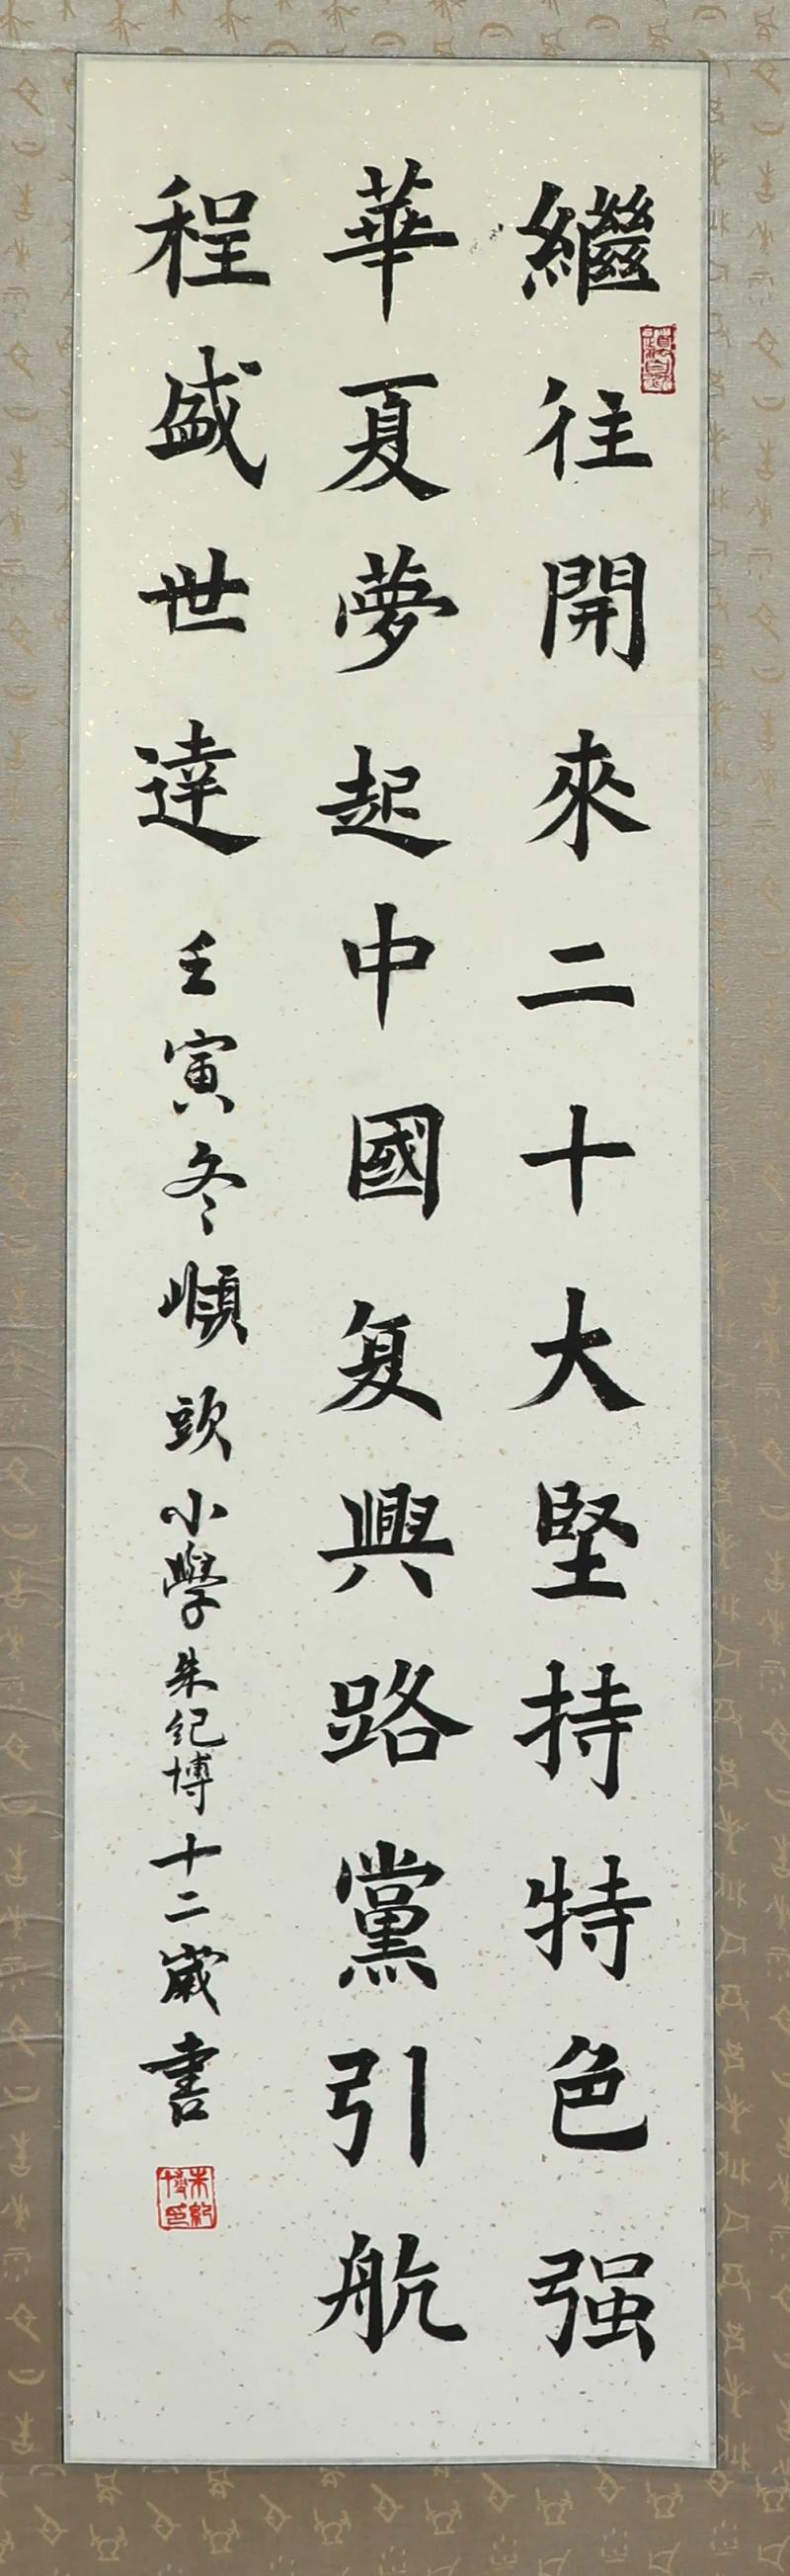 繼往開來二十大堅持特色强
華夏夢起中國复興路黨引航
程盛世達
壬寅冬順頭小學朱紀博十二歲書
朱紀博印